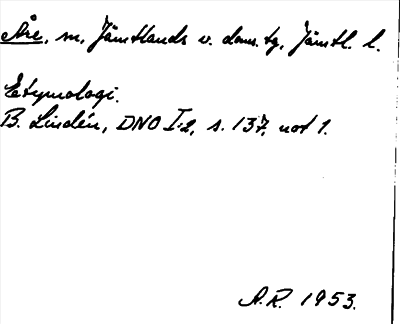 Åre, m, Jämtlands v. doms. tg, Jämtl. l.
Etymologi.
B. Lindén, DNO I:2, s. 137, not 1.
A.R. 1953.